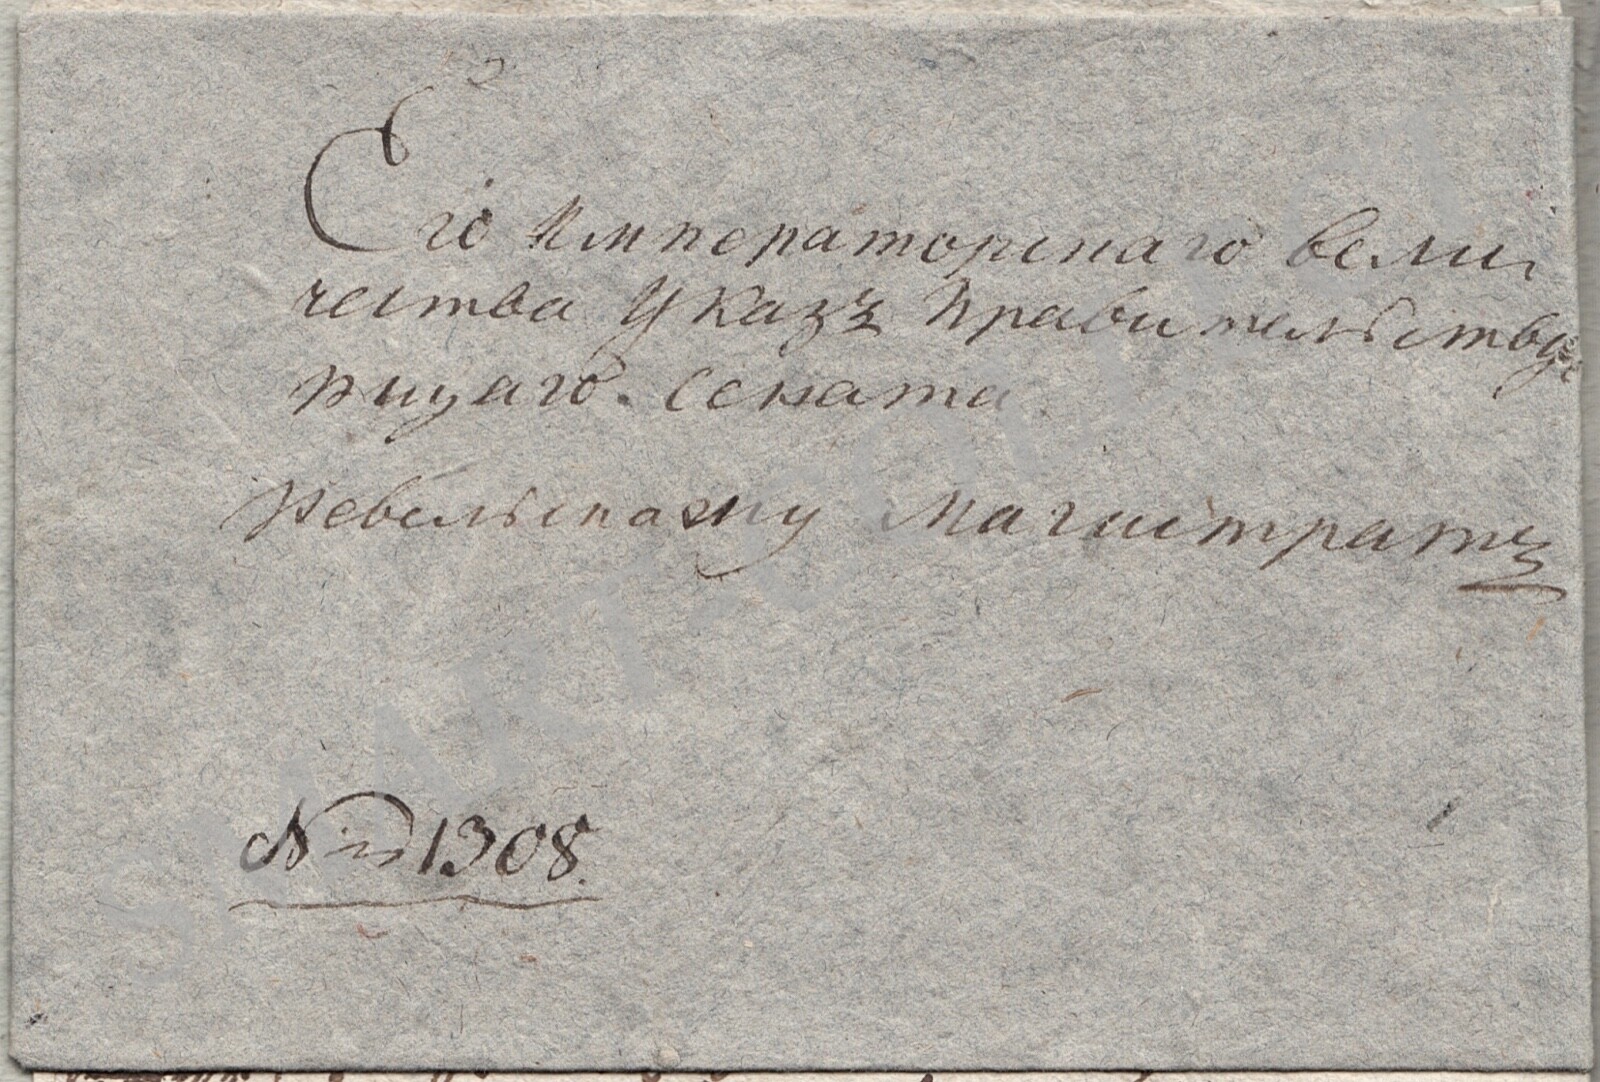 Его Императорскаго вели
чества Указъ Правительству
ющаго Сената
Ревельскому Магистрату
№ 1308.